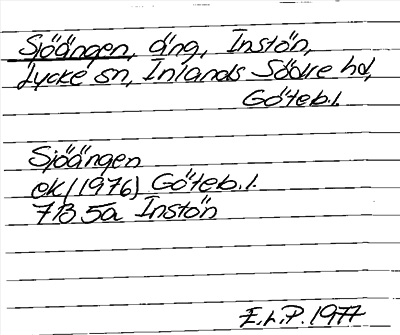 Sjöängen, äng, Instön,
Lycke sn, Inlands Södre hd,
Göteb.l.
Sjöängen
ek (1976) Göteb.l.
7B 5a Instön
E.h.P. 1977